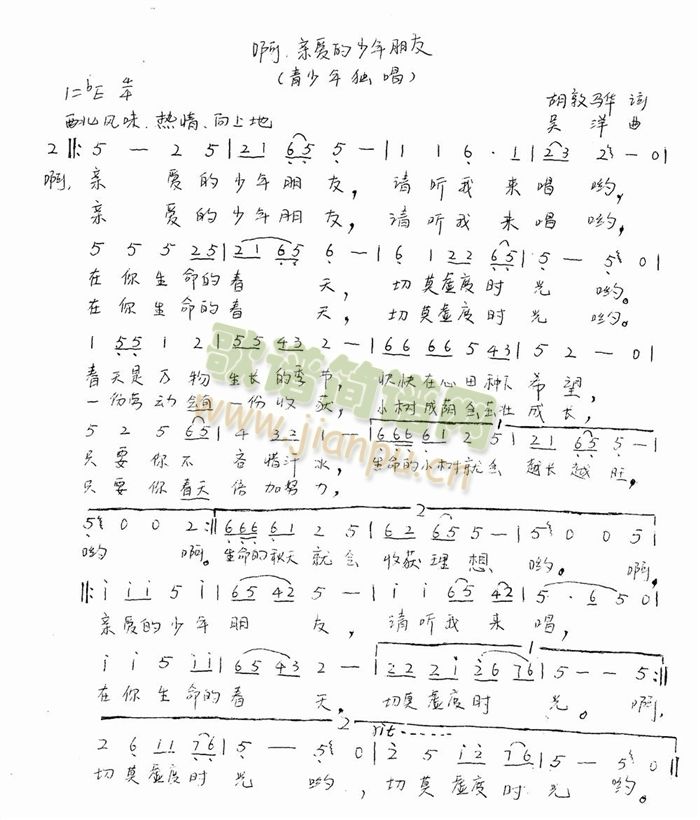 啊,亲爱的少年朋友
(青少年独唱)
1=♭E 4/4
胡敦骅 词
西北风味、热情、向上地
吴 洋 曲
2 ‖: 5 — 2 5 | 2 1 6 5 5 — | 1 1 6 · 1 | 2 3 2 — 0 |
啊, 亲 爱的少年朋 友, 请听我 来唱 哟,
亲 爱的少年朋 友, 请听我 来唱 哟,
5 5 5 2 5 | 2 1 6 5 6 — | 6 1 2 2 6 5 | 5 — 5 0 |
在你生命的春 天, 切莫虚度时 光 哟。
在你生命的春 天, 切莫虚度时 光 哟。
1 5 5 1 2 | 5 5 4 3 2 — | 6 6 6 6 5 4 3 | 5 2 — 0 |
春天是万物生长的季节, 快快在心田种下希望,
一份劳动 一份收获, 小树成阴 茁壮成长,
5 2 5 6 5 | 4 3 2 1 — | 6 6 6 6 1 2 5 | 2 1 6 5 5 — |
只要你不 吝惜汗水, 生命的小树就会 越长越旺,
只要你春天 倍加努力,
2
5 0 0 2 :‖ 6 6 6 6 1 2 5 | 6 2 6 5 5 — | 5 0 0 5 |
哟 啊。生命的秋天就会 收获理想 哟。 啊,
‖: i i i 5 i | 6 5 4 2 5 — | i i 6 5 4 2 | 5 · 6 5 0 |
亲爱的少年朋 友, 请听我来 唱,
1
i i 5 i i | 6 5 4 3 2 — | 2 2 2 i 2 6 7 6 | 5 — — 5 :‖
在你生命的春 天, 切莫虚度时 光。 啊,
2 rit------
2 6 i i 7 6 | 5 — 5 0 | 2 5 i 2 7 6 | 5 — 5 0 ‖
切莫虚度时 光 哟, 切莫虚度时 光 哟。
歌谱简谱网
www.jianpu.cn